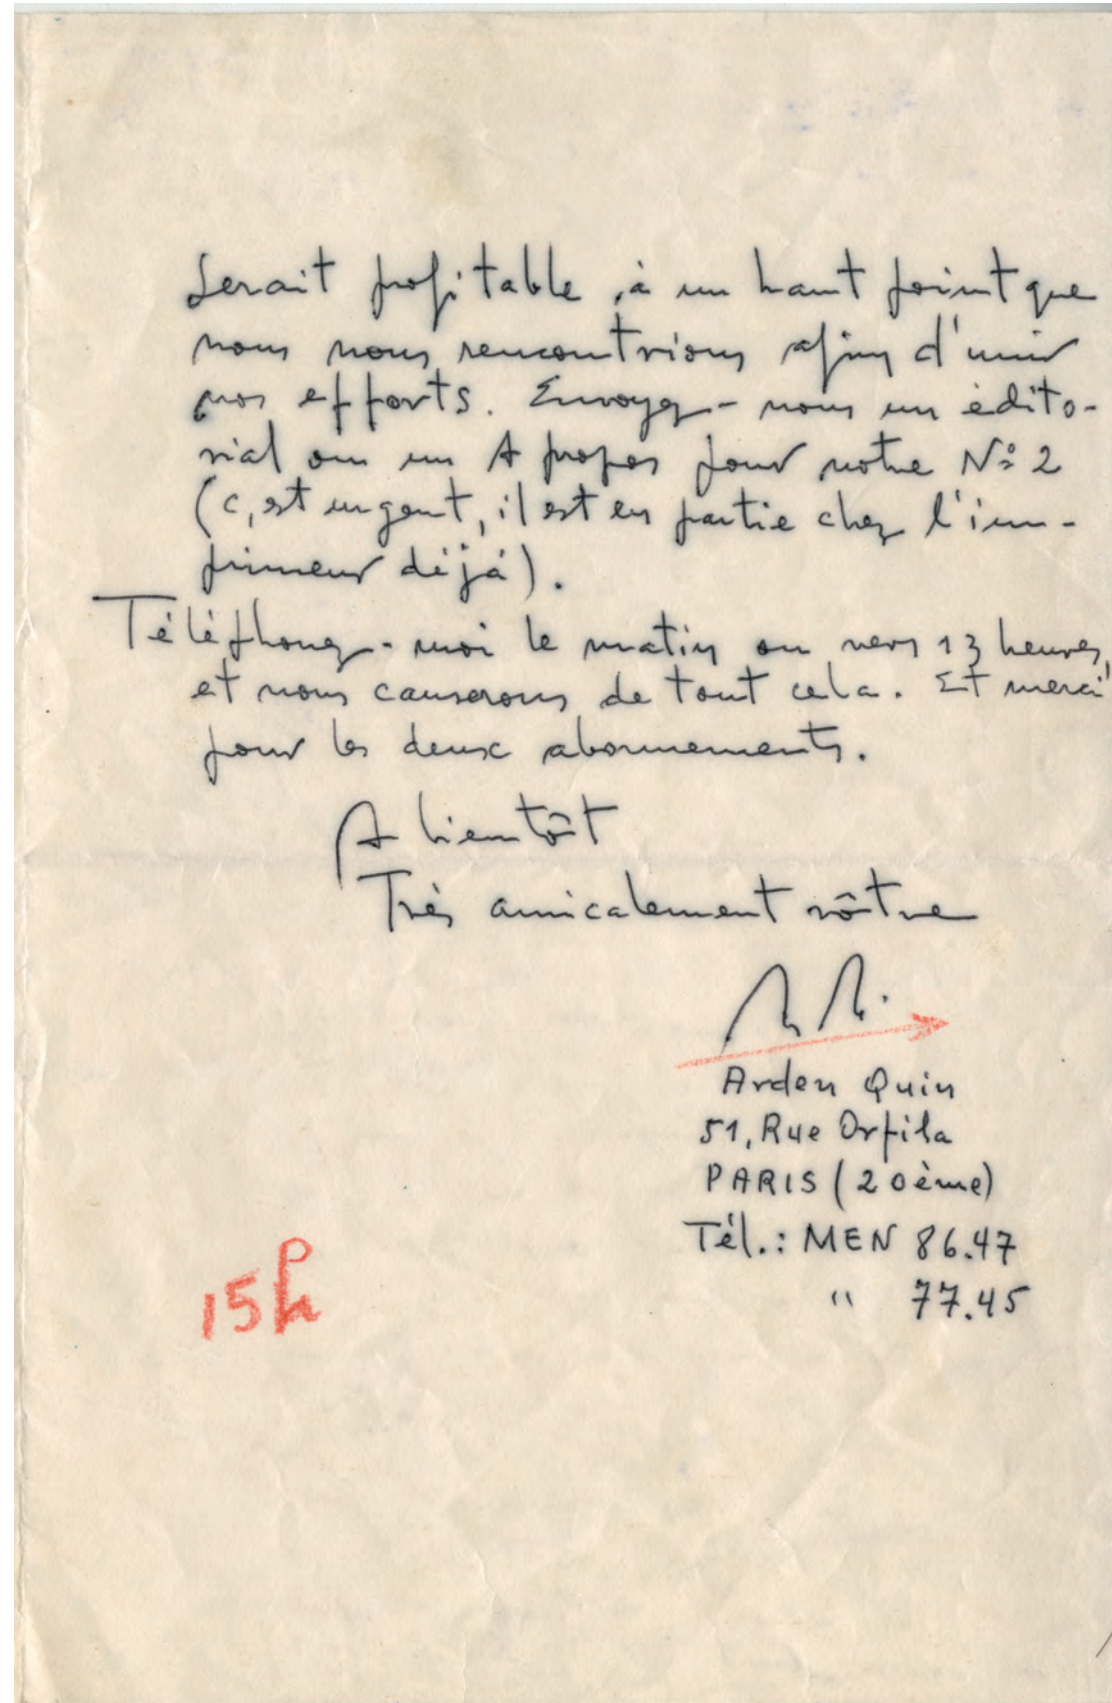 serait profitable, à un haut point que
nous nous rencontrions afin d'unir
nos efforts. Envoyez-nous un édito-
rial ou un A propos pour notre Nº 2
(c'est urgent, il est en partie chez l'im-
primeur déjà).
Téléphonez-moi le matin ou vers 13 heures,
et nous causerons de tout cela. Et merci
pour les deux abonnements.
A bientôt
Très amicalement vôtre
Arden Quin
51, Rue Orfila
PARIS (20ème)
Tél.: MEN 86.47
" 77.45
15h